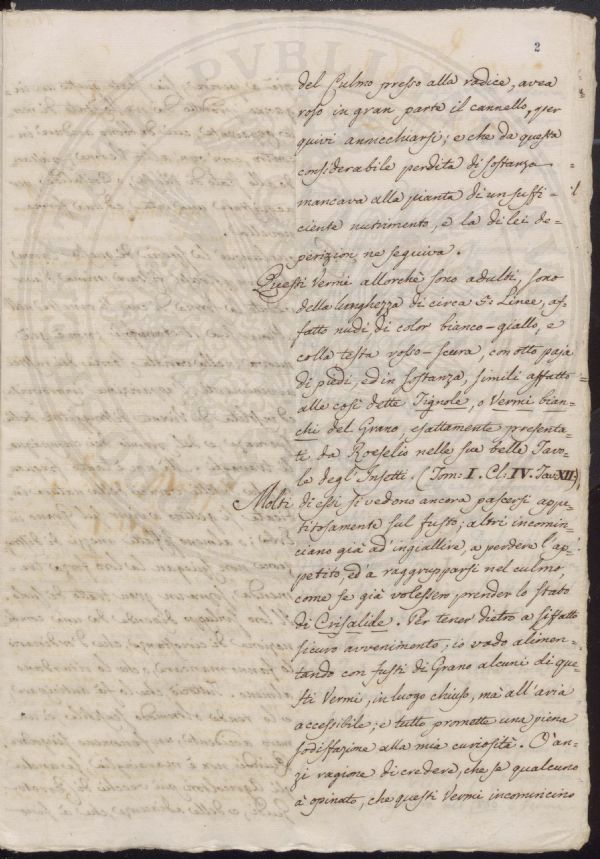 2
del Culmo presso alla radice, avea
roso in gran parte il cannello, per
quivi annicchiarsi; e che da questa
considerabile perdita di sostanza
mancava alla pianta di un suffi-
ciente nutrimento, e la di lei de-
perizion ne seguiva.
Questi Vermi allorchè sono adulti, sono
della lunghezza di circa 5. Linee, af-
fatto nudi, di color bianco-giallo, e
colla testa rosso-scura, con otto paja
di piedi, ed in sostanza, simili affatto
alle così dette Tignole, o Vermi bian-
chi del Grano esattamente presenta-
ti, da Roeselio nelle sue belle Tavo-
le degl'Insetti. (Tom: I. Cl: IV. Tav: XII.)
Molti di essi si vedono ancora pascersi appe-
titosamente sul fusto; altri incomin-
ciano già ad ingiallire, a perdere l'ap-
petito, ed a raggrupparsi nel culmo,
come se già volessero prender lo stato
di Crisalide. Per tener dietro a siffatto
sicuro avvenimento; io vado alimen-
tando con fusti di Grano alcuni di que-
sti Vermi, in luogo chiuso, mà all'aria
accessibile; e tutto promette una piena
sodisfazione alla mia curiosità. O' an-
zi ragione di credere, che se qualcuno
à opinato, che questi Vermi incomincino